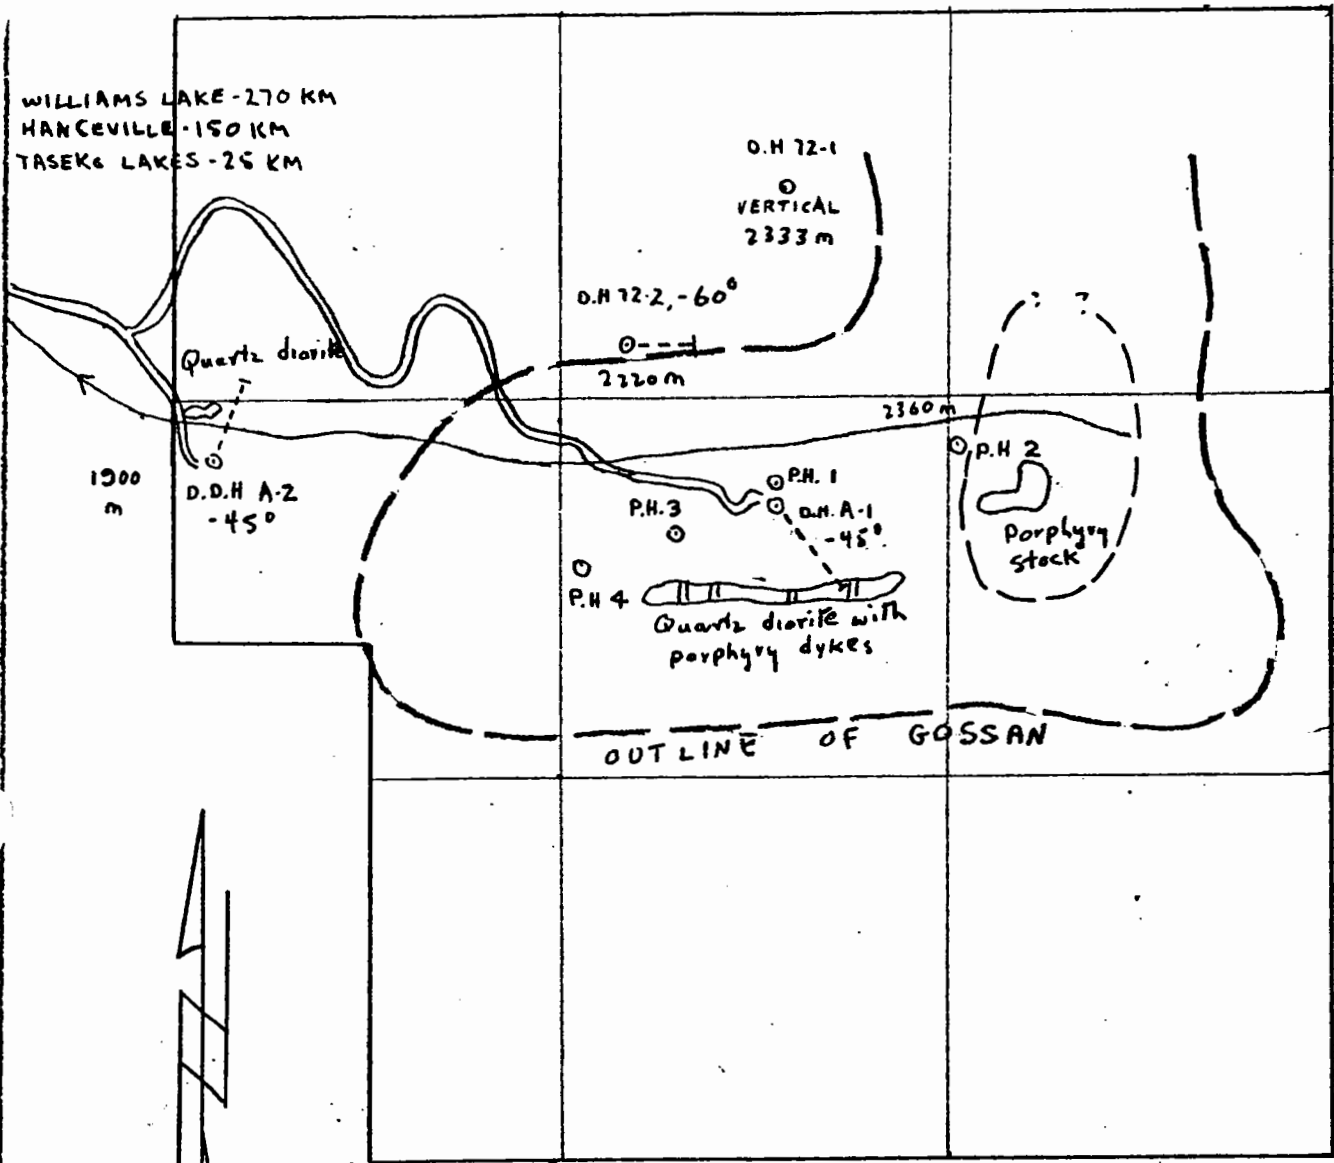 WILLIAMS LAKE - 270 KM
HANCEVILLE - 150 KM
TASEKO LAKES - 25 KM
D.H 72-1
VERTICAL
2333 m
D.H 72-2, -60°
2220 m
Quartz diorite
2360 m
1900
m
D.D.H A-2
-45°
P.H. 1
P.H 2
P.H. 3
D.H. A-1
-45°
Porphyry
stock
P.H 4
Quartz diorite with
porphyry dykes
OUTLINE OF GOSSAN
? ?